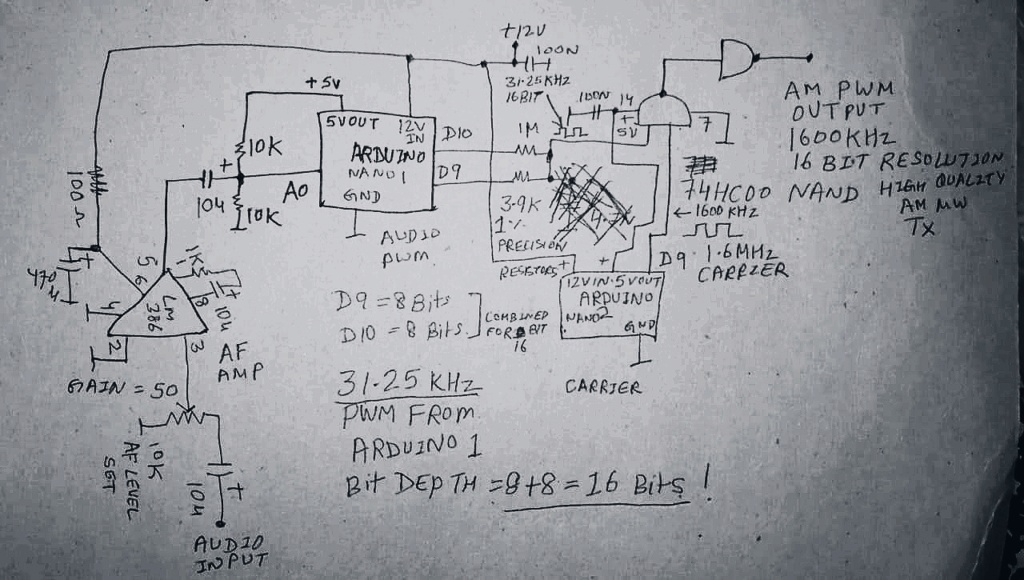 +12V
100N
31.25KHZ
16BIT
100N
14
+
5V
7
+5V
5VOUT
12V
IN
ARDUINO
NANO1
GND
D10
D9
A0
1M
3.9K
1%
PRECISION
RESISTORS
AUDIO
PWM
10K
+
104
10K
100Ω
+
470u
5
6
1K
1
8
+
10u
4
LM
386
2
3
AF
AMP
GAIN = 50
10K
AF LEVEL
SET
+
10u
AUDIO
INPUT
74HC00 NAND
← 1600 KHZ
D9
1.6MHZ
CARRIER
+
+
12VIN.5VOUT
ARDUINO
NANO2
GND
CARRIER
AM PWM
OUTPUT
1600KHZ
16 BIT RESOLUTION
HIGH QUALITY
AM MW
TX
D9 = 8 Bits
D10 = 8 Bits.
COMBINED
FOR BIT
16
31.25 KHZ
PWM FROM
ARDUINO 1
Bit DEPTH = 8+8 = 16 Bits !